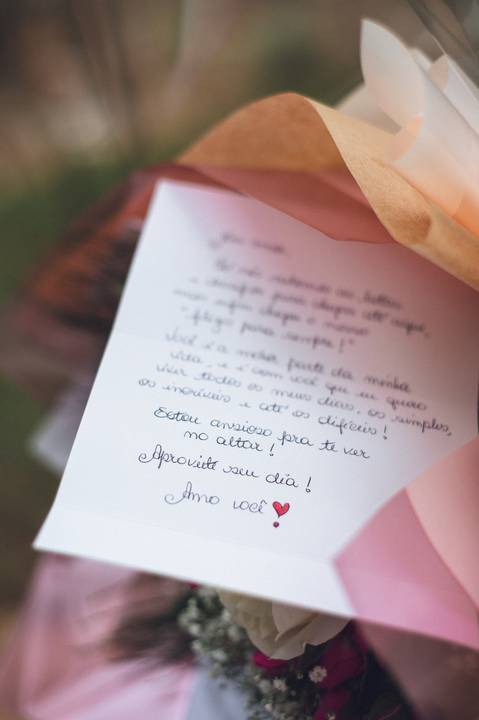 e desafios para chegar até aqui,
mas enfim chegou o nosso
para sempre!"
Você é a melhor parte da minha
vida, e é com você que eu quero
viver todos os meus dias, os simples,
os incríveis e até os difíceis!
Estou ansioso pra te ver
no altar!
Aproveite seu dia!
Amo você